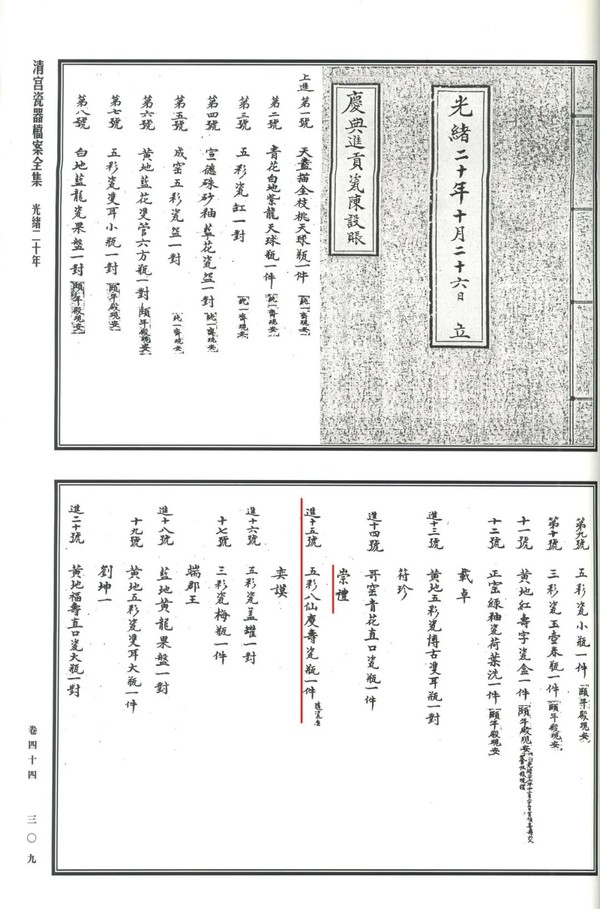 光緒二十年十月二十六日 立
慶典進貢瓷陳設賬
上進 第一號 天藍描金枝桃天球瓶一件
第二號 青花白地紫龍天球瓶一件
第三號 五彩瓷缸一對
第四號 宣德硃砂釉藍花瓷盌一對
第五號 成窑五彩瓷盌一對
第六號 黃地藍花雙管六方瓶一對 頤年殿現安
第七號 五彩瓷雙耳小瓶一對 頤年殿現安
第八號 白地藍龍瓷果盤一對 頤年殿現安
清宫瓷器檔案全集 光緒二十年
第九號 五彩瓷小瓶一件 頤年殿現安
第十號 三彩瓷玉壺春瓶一件 頤年殿現安
十一號 黃地紅壽字瓷盒一件 頤年殿現安
十二號 正窑綠釉瓷荷葉洗一件 頤年殿現安
載卓
進十三號 黃地五彩瓷博古雙耳瓶一對
符珍
進十四號 哥窑青花直口瓷瓶一件
崇禮
進十五號 五彩八仙慶壽瓷瓶一件
奕謨
進十六號 五彩瓷蓋罐一對
十七號 三彩瓷梅瓶一件
端郡王
進十八號 藍地黃龍果盤一對
十九號 黃地五彩瓷雙耳大瓶一件
劉坤一
進二十號 黃地福壽直口瓷大瓶一對
卷四十四 三〇九